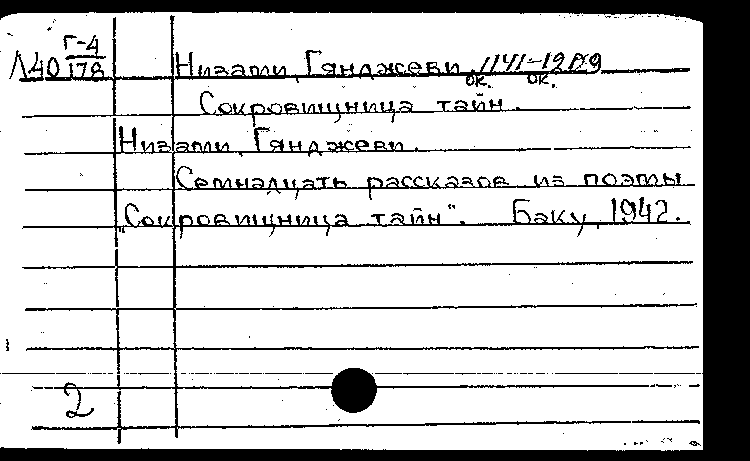 Л40 Г-4/178 Низами, Гянджеви, ок. 1141-ок. 1209
Сокровищница тайн.
Низами, Гянджеви.
Семнадцать рассказов из поэмы
"Сокровищница тайн". Баку, 1942.
2